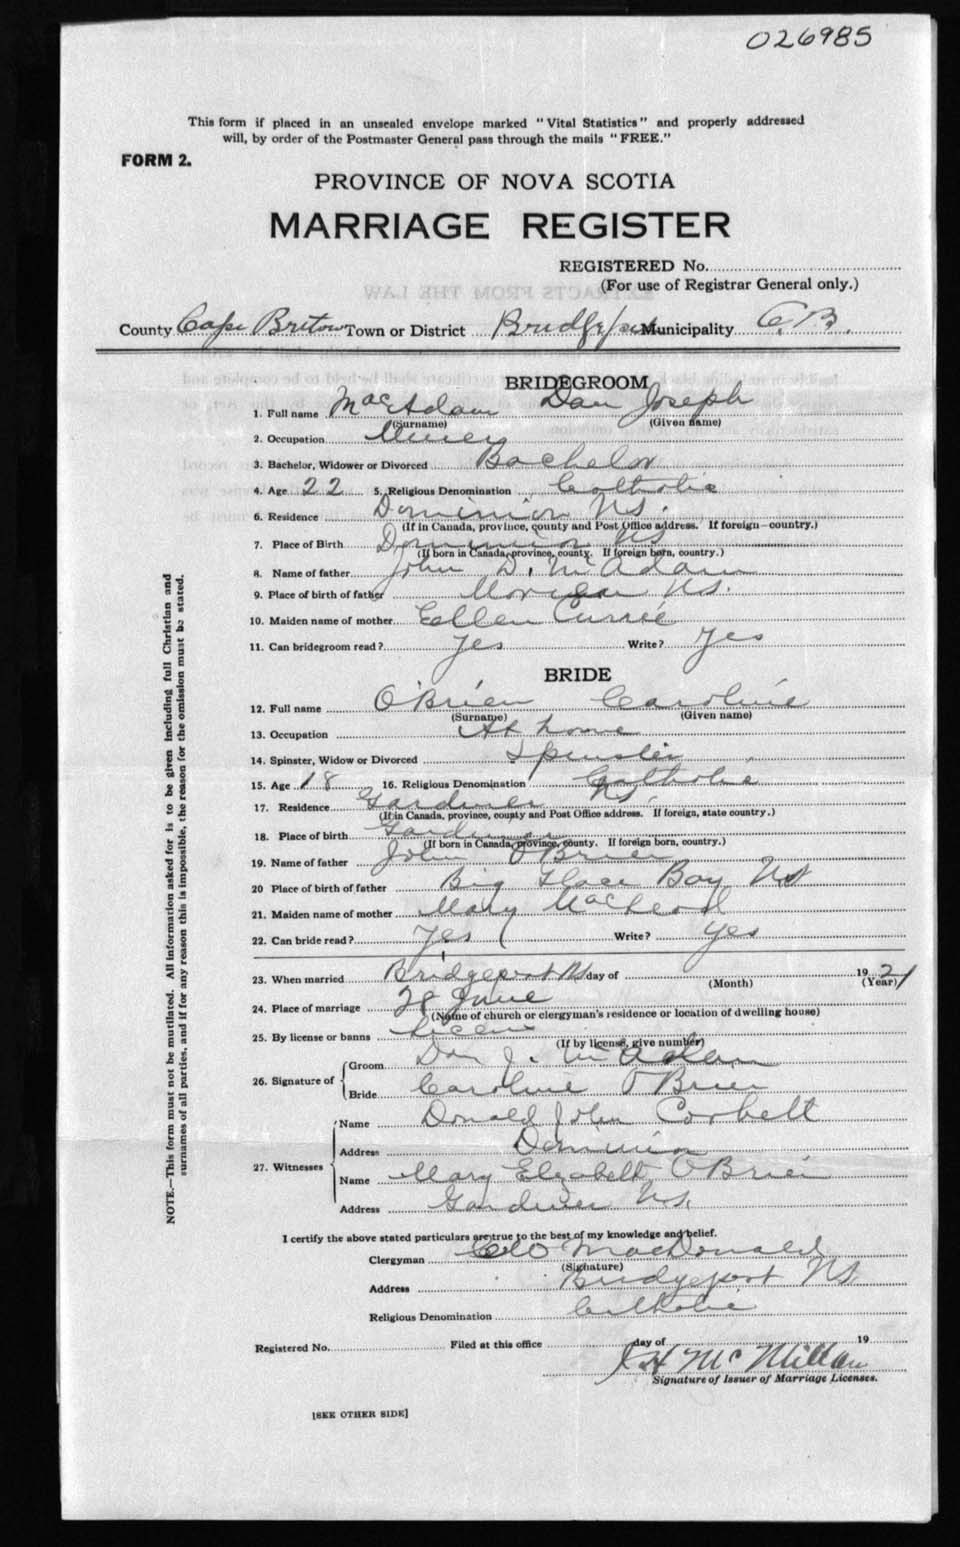 026985
This form if placed in an unsealed envelope marked "Vital Statistics" and properly addressed
will, by order of the Postmaster General pass through the mails "FREE."
FORM 2.
PROVINCE OF NOVA SCOTIA
MARRIAGE REGISTER
REGISTERED No.
(For use of Registrar General only.)
EXTRACTS FROM THE LAW
County Cape Breton Town or District Bridgeport Municipality C.B.
BRIDEGROOM
1. Full name MacAdam Dan Joseph
(Surname) (Given name)
2. Occupation Miner
3. Bachelor, Widower or Divorced Bachelor
4. Age 22 5. Religious Denomination Catholic
6. Residence Dominion N.S.
(If in Canada, province, county and Post Office address. If foreign—country.)
7. Place of Birth Dominion NS
(If born in Canada, province, county. If foreign born, country.)
8. Name of father John D. McAdam
9. Place of birth of father N.S.
10. Maiden name of mother Ellen Currie
11. Can bridegroom read? Yes Write? Yes
BRIDE
12. Full name O'Brien Caroline
(Surname) (Given name)
13. Occupation At home
14. Spinster, Widow or Divorced Spinster
15. Age 18 16. Religious Denomination Catholic
17. Residence Gardiner NS.
(If in Canada, province, county and Post Office address. If foreign, state country.)
18. Place of birth Gardiner
(If born in Canada, province, county. If foreign born, country.)
19. Name of father John O'Brien
20 Place of birth of father Big Glace Bay NS
21. Maiden name of mother Mary MacLeod
22. Can bride read? Yes Write? Yes
23. When married Bridgeport NS day of 1921
(Month) (Year)
24. Place of marriage 28 June
(Name of church or clergyman's residence or location of dwelling house)
25. By license or banns License
(If by license, give number)
26. Signature of Groom Dan J. McAdam
Bride Caroline O'Brien
27. Witnesses Name Donald John Corbett
Address Dominion
Name Mary Elizabeth O'Brien
Address Gardiner NS.
I certify the above stated particulars are true to the best of my knowledge and belief.
Clergyman MacDonald
(Signature)
Address Bridgeport NS
Religious Denomination Catholic
Registered No. Filed at this office day of 19
J H McMillan
Signature of Issuer of Marriage Licenses.
[SEE OTHER SIDE]
NOTE.—This form must not be mutilated. All information asked for is to be given including full Christian and
surnames of all parties, and if for any reason this is impossible, the reason for the omission must be stated.